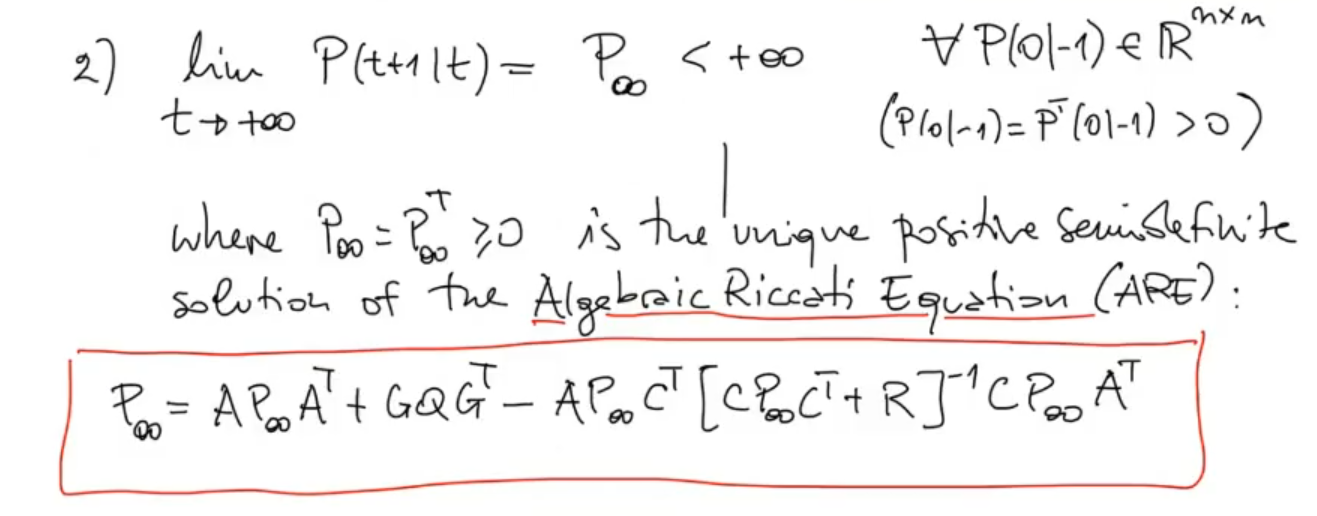 2) lim P(t+1|t) = P∞ < +∞ ∀ P(0|-1) ∈ ℝⁿˣⁿ
t→+∞ (P(0|-1) = Pᵀ(0|-1) > 0)
where P∞ = P∞ᵀ ⩾ 0 is the unique positive semidefinite
solution of the Algebraic Riccati Equation (ARE):
P∞ = A P∞ Aᵀ + GQGᵀ − A P∞ Cᵀ [C P∞ Cᵀ + R]⁻¹ C P∞ Aᵀ